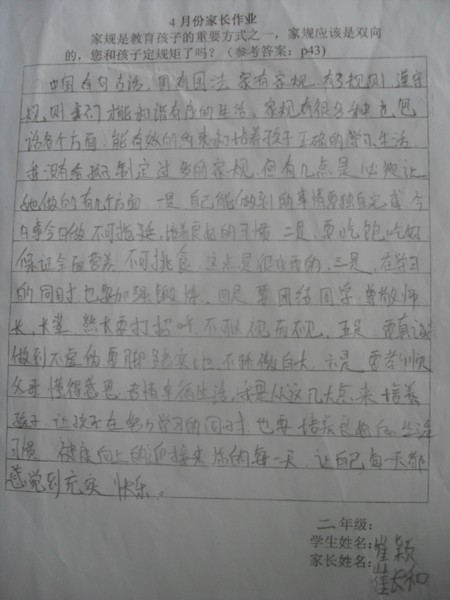 4月份家长作业
家规是教育孩子的重要方式之一，家规应该是双向
的，您和孩子定规矩了吗？（参考答案：p43）
中国有句古话，国有国法，家有家规，有了规则，遵守
规则 我们才能和谐有序的生活，家规有很多种，包
括各个方面，能有效的约束和培养孩子正确的学习、生活
我没有给孩子制定过多的家规，但有几点是必须让
她做的有几个方面 一是，自己能做到的事情要独自完成 今
日事今日做 不可拖延，培养良好的习惯 二是，要吃饱吃好
保证全面营养 不可挑食，这点是很重要的，三是，在学习
的同时 也要加强锻炼，四是 要团结同学，尊敬师
长，长辈 要打招呼，不可视而不见，五是，要真诚
做到不虚伪 要脚踏实地 不骄傲自大，六是 要孝顺
父母 懂得感恩 生活，我要从这几大点来培养
孩子 让孩子在努力学习的同时 也要培养良好的生活
习惯 健康向上的迎接未来的每一天 让自己每一天都
感觉到充实 快乐。
二年级：
学生姓名：崔颖
家长姓名：崔长和